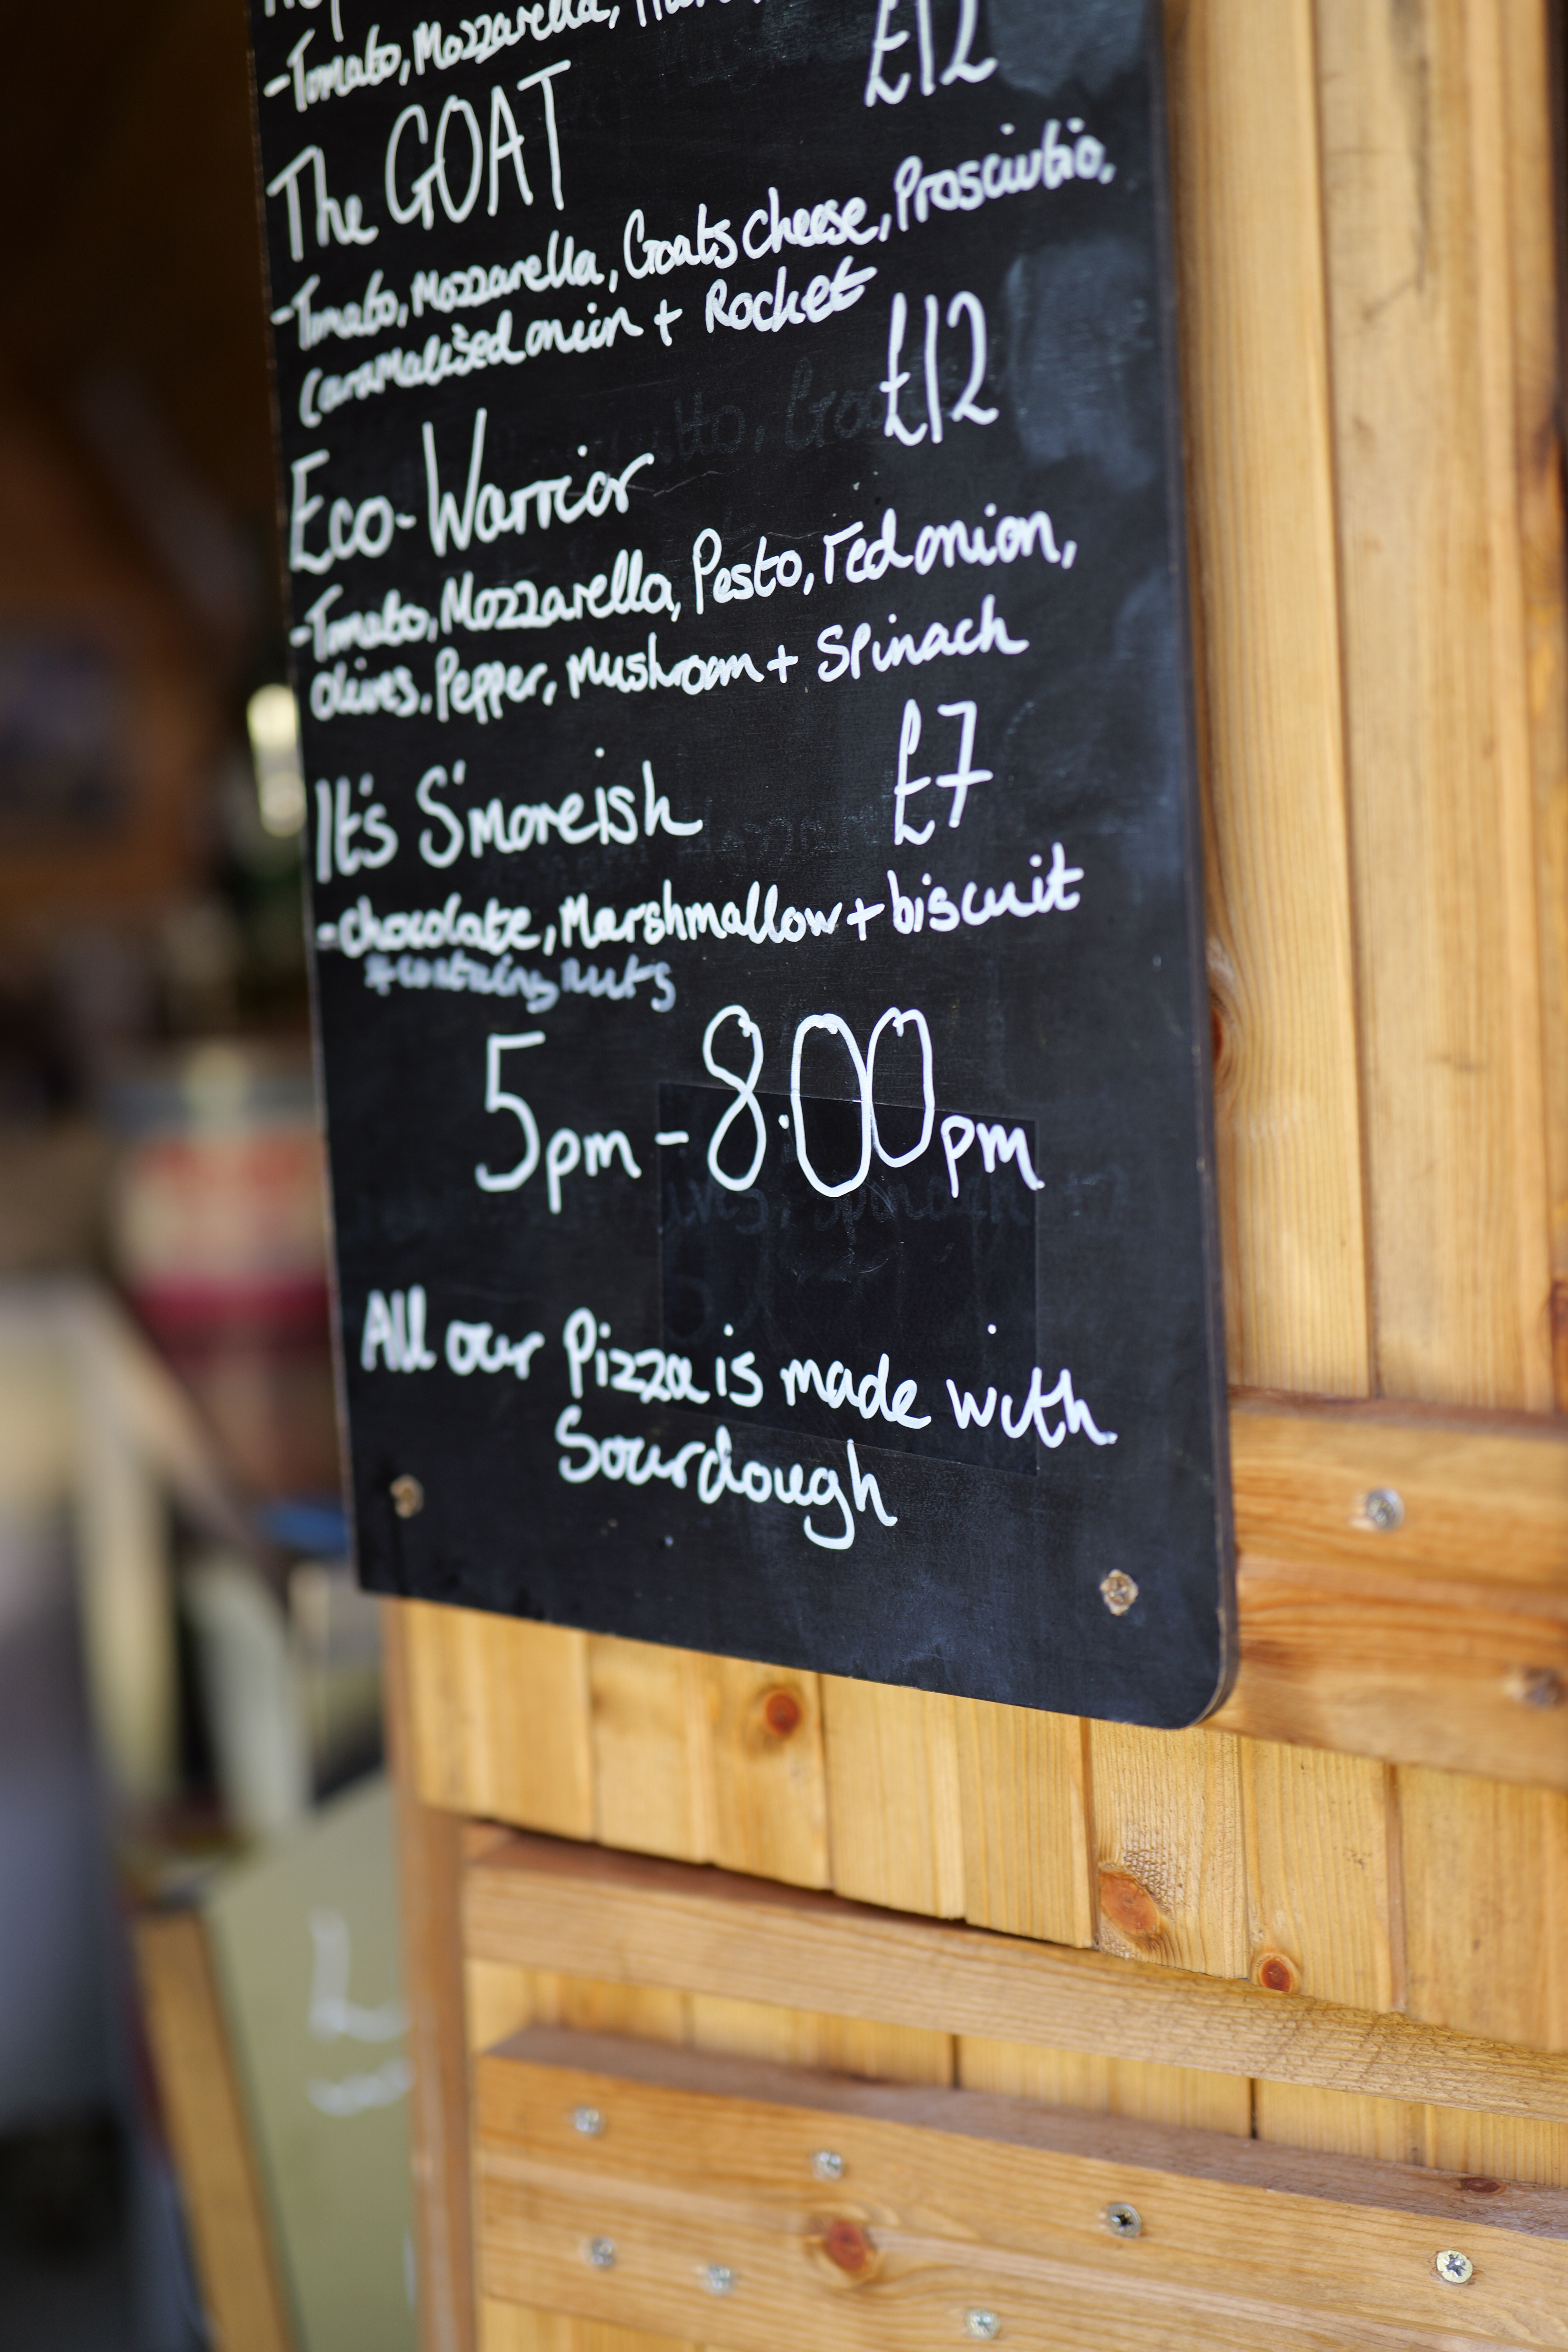 -Tomato, Mozzarella,
The GOAT £12
-Tomato, Mozzarella, Goats cheese, Prosciutto,
Caramelised onion + Rocket
Eco-Warrior £12
-Tomato, Mozzarella, Pesto, red onion,
olives, Pepper, Mushroom + Spinach
It's S'moreish £7
-chocolate, Marshmallow + biscuit
*contains nuts
5pm - 8.00pm
All our Pizza is made with
Sourdough